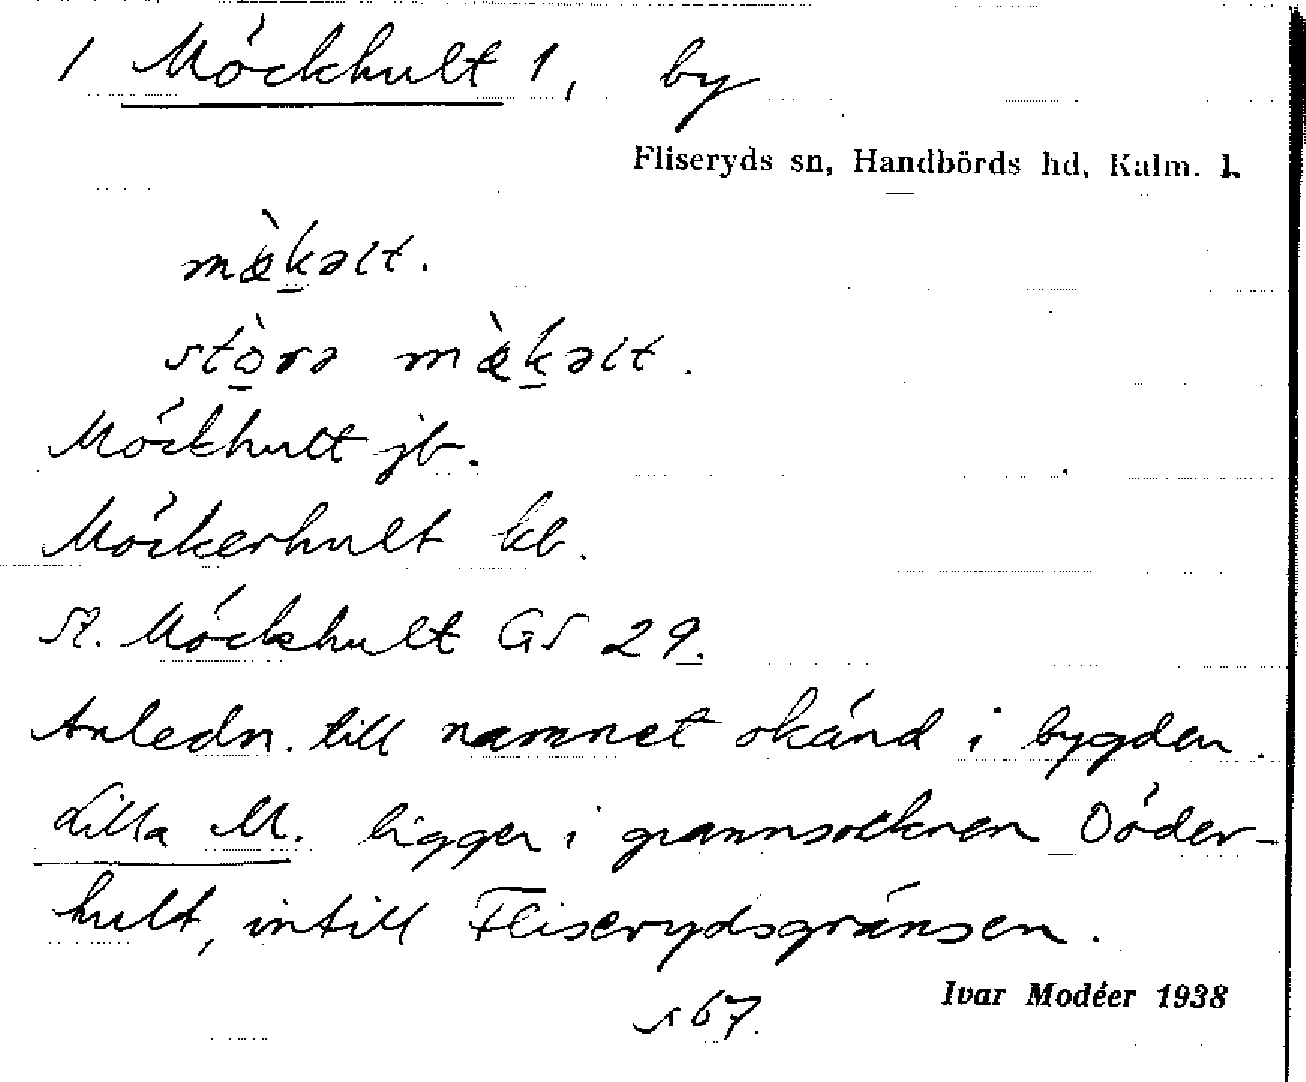 1 Möckhult 1, by
Fliseryds sn, Handbörds hd, Kalm. l.
mæ̀k̲əlt.
stò̲rə mæ̀k̲əlt.
Möckhult jb.
Möckerhult kb.
St. Möckhult GS 29.
Anledn. till namnet okänd i bygden.
Lilla M. ligger i grannsocknen Döder-
hult, intill Fliserydsgränsen.
Ivar Modéer 1938
s 67.